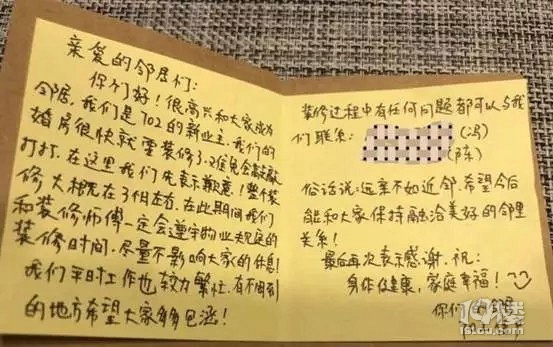 亲爱的邻居们:
你们好!很高兴和大家成为
邻居,我们是702的新业主,我们的
婚房很快就要装修了,难免会敲敲
打打,在这里我们先表示歉意!整个装
修大概在3个月左右,在此期间我们
和装修师傅一定会遵守物业规定的
装修时间,尽量不影响大家的休息!
我们平时工作也较为繁忙,有不周到
的地方希望大家多多包涵!
装修过程中有任何问题都可以与我
们联系:
(冯)
(陈)
俗话说:远亲不如近邻,希望今后
能和大家保持融洽美好的邻里
关系!
最后再次表示感谢,祝:
身体健康,家庭幸福!
你们的邻居
19楼
19lou.com